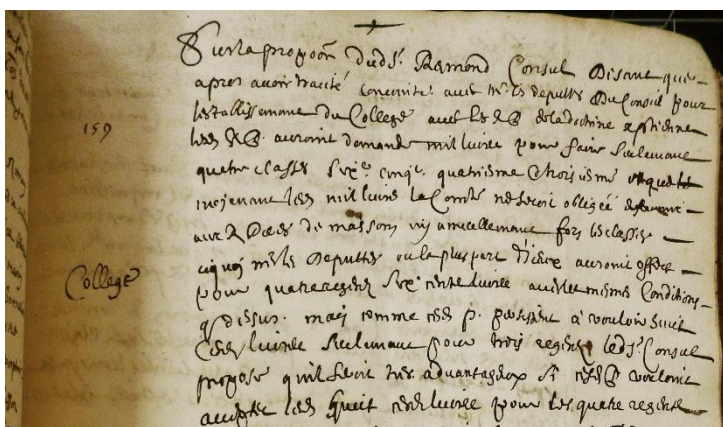 Sur la propoon dudt Sr. Ramond Consul disant que
apres avoir traicté conioinctemt. avec mrs. les deputtés du Conseil pour
lestablissemant du College avec les RP de la doctrine xpstienne
159
lesd RP. auroint demandé mil livres pour faire sulemant
quatre classes sixe. cinqe. quatriesme troisiesme
moyenant lesd mil livres la Comté ne seroit obligée
aux de maison ny amullemant fors les classes
a quoy mrs. les deputtes ou la plus part d'iceux auroint offert
College
pour quatre regens six cents livres avec les mesmes Conditions
q dessus. mais comme lesd p. persistent à vouloir huit
cens livres sulemant pour trois regens ledt Sr. Consul
propose quil seroit tres advantageux si lesd RP vouloint
accepter lesd huit cens livres pour les quatre regens